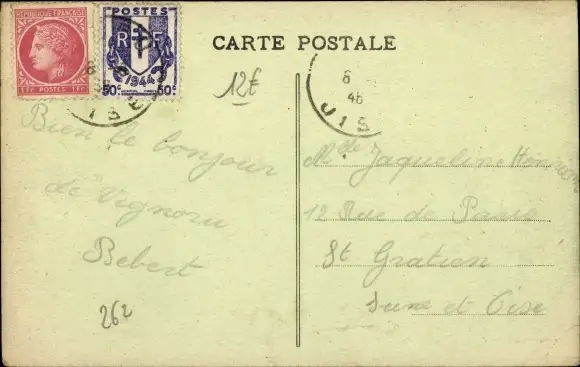 REPUBLIQUE FRANÇAISE
1Fr POSTES 1Fr
POSTES
R F
1944
50c 50c
CARTE POSTALE
12€
8
46
OIS
Bien le bonjour
de Vignoru
Bebert
262
Mlle Jaqueline
12 Rue de Paris
St Gratien
Seine et Oise